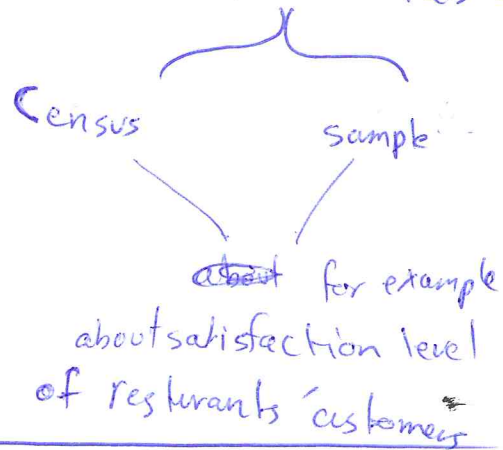 Census sample
for example
about satisfaction level
of resturants' customers